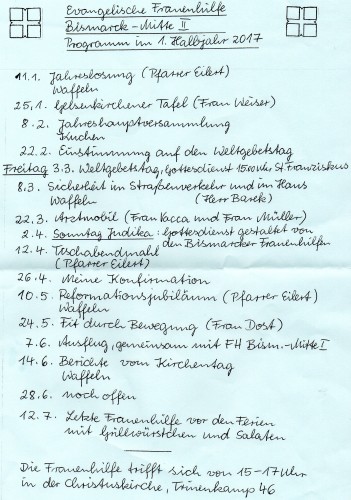 Evangelische Frauenhilfe
Bismarck-Mitte II
Programm im 1. Halbjahr 2017
11.1. Jahreslosung (Pfarrer Eilert)
Waffeln
25.1. Gelsenkirchener Tafel (Frau Weiser)
8.2. Jahreshauptversammlung
Kuchen
22.2. Einstimmung auf den Weltgebetstag
Freitag 3.3. Weltgebetstag, Gottesdienst 15.00 Uhr St Franziskus
8.3. Sicherheit im Straßenverkehr und im Haus
Waffeln (Herr Barek)
22.3. Arztmobil (Frau Vacca und Frau Müller)
2.4. Sonntag Judika: Gottesdienst gestaltet von
den Bismarcker Frauenhilfen
12.4. Tischabendmahl
(Pfarrer Eilert)
26.4. Meine Konfirmation
10.5. Reformationsjubiläum (Pfarrer Eilert)
Waffeln
24.5. Fit durch Bewegung (Frau Dost)
7.6. Ausflug, gemeinsam mit FH Bism.-Mitte I
14.6. Berichte vom Kirchentag
Waffeln
28.6. noch offen
12.7. Letzte Frauenhilfe vor den Ferien
mit Grillwürstchen und Salaten
Die Frauenhilfe trifft sich von 15-17 Uhr
in der Christuskirche, Trinenkamp 46